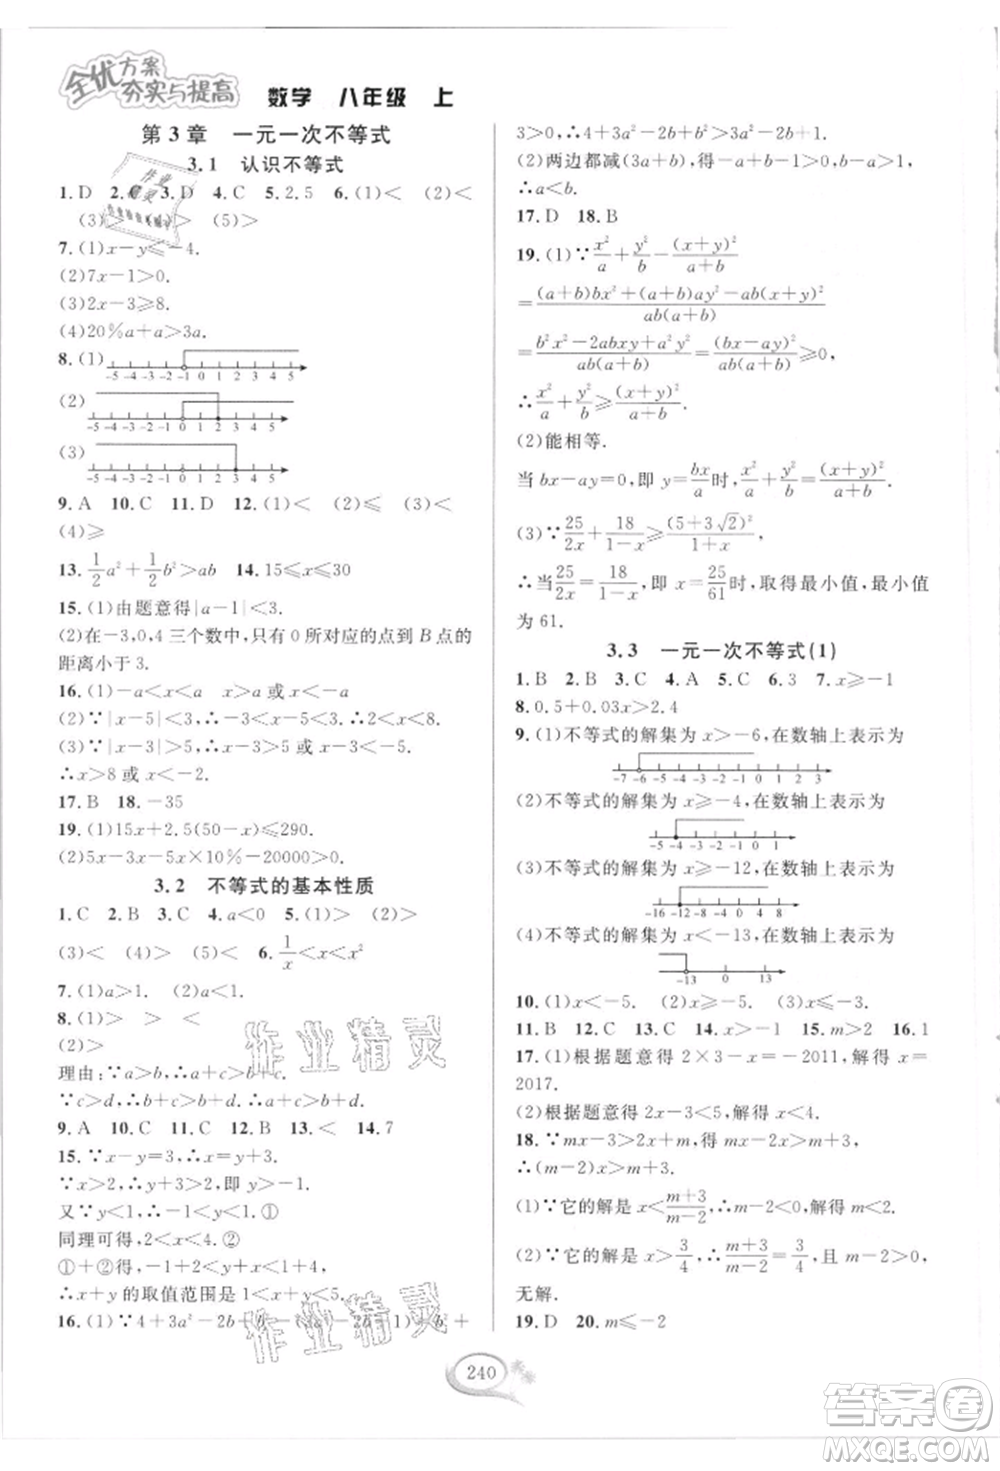 全优方案
夯实与提高
数学 八年级 上
第3章 一元一次不等式
3.1 认识不等式
1. D 2. C 3. D 4. C 5. 2,5 6. (1)< (2)<
(3)> (5)>
7. (1)x-y≤-4.
(2)7x-1>0.
(3)2x-3≥8.
(4)20%a+a>3a.
8. (1)
-5 -4 -3 -2 -1 0 1 2 3 4 5
(2)
-5 -4 -3 -2 -1 0 1 2 3 4 5
(3)
-5 -4 -3 -2 -1 0 1 2 3 4 5
9. A 10. C 11. D 12. (1)< (2)< (3)<
(4)≥
13. 1/2 a²+1/2 b²>ab 14. 15≤x≤30
15. (1)由题意得|a-1|<3.
(2)在-3,0,4三个数中,只有0所对应的点到B点的
距离小于3.
16. (1)-a<x<a x>a或x<-a
(2)∵|x-5|<3,∴-3<x-5<3,∴2<x<8.
(3)∵|x-5|>3,∴x-5>3或x-5<-3.
∴x>8或x<2.
17. B 18. -35
19. (1)15x+2.5(50-x)≤290.
(2)5x-3x-5x×10%-20000>150000.
3.2 不等式的基本性质
1. C 2. B 3. C 4. a<0 5. (1)> (2)>
(3)< (4)< 6. 1/x<x<x²
7. (1)a>1. (2)a<1.
8. (1)> > < =
(2)>
理由:∵a>b,∴a+c>b+c.
∵c>d,∴b+c>b+d,∴a+c>b+d.
9. A 10. C 11. A 12. B 13. < 14. 7
15. ∵x-y=3,∴x=y+3.
∵x>2,∴y+3>2,即y>-1.
又∵y<1,∴-1<y<1.①
同理可得,2<x<4.②
①+②得,-1+2<y+x<1+4,
∴x+y的取值范围是1<x+y<5.
16. (1)∵4+3a²-2b+b²-(3a²-2b+1)=b²+
3>0,∴4+3a²-2b+b²>3a²-2b+1.
(2)两边都减(3a+b),得-a-b>-2b,
∴a<b.
17. D 18. B
19. (1)∵x²/a+y²/b-(x+y)²/(a+b)
=((a+b)bx²+(a+b)ay²-ab(x+y)²)/(ab(a+b))
=(b²x²-2abxy+a²y²)/(ab(a+b))=(bx-ay)²/(ab(a+b))≥0,
∴x²/a+y²/b≥(x+y)²/(a+b).
(2)能相等.
当bx-ay=0,即y=bx/a时,x²/a+y²/b=(x+y)²/(a+b).
(3)∵25/2x+18/(1-x)≥(5+3√2)²/(1+x),
∴当25/2x=18/(1-x),即x=25/61时,取得最小值,最小值
为61.
3.3 一元一次不等式(1)
1. B 2. B 3. C 4. A 5. C 6. 3 7. x≥-1
8. 0.5+0.03x>2.4
9. (1)不等式的解集为x>-6,在数轴上表示为
-7 -6 -5 -4 -3 -2 -1 0 1 2 3
(2)不等式的解集为x≥-4,在数轴上表示为
-5 -4 -3 -2 -1 0 1
(3)不等式的解集为x≥-12,在数轴上表示为
-16 -12 -8 -4 0 4 8
(4)不等式的解集为x<-13,在数轴上表示为
-13 0 13
10. (1)x<-5. (2)x>4. (3)x<-5.
11. B 12. D 13. C 14. x>-1 15. m>2 16. 1
17. (1)根据题意得2×3-x=-2011,解得x=
2017.
(2)根据题意得2x-3<5,解得x<4.
18. ∵mx-3>2x+m,得mx-2x>m+3.
∴(m-2)x>m+3.
(1)∵它的解是x<(m+3)/(m-2),∴m-2<0,解得m<2.
(2)∵它的解是x>3/4,∴(m+3)/(m-2)=3/4,且m-2>0,
无解.
19. D 20. m≤-2
240
作业精灵
作业精灵
答案圈
MXQE.COM